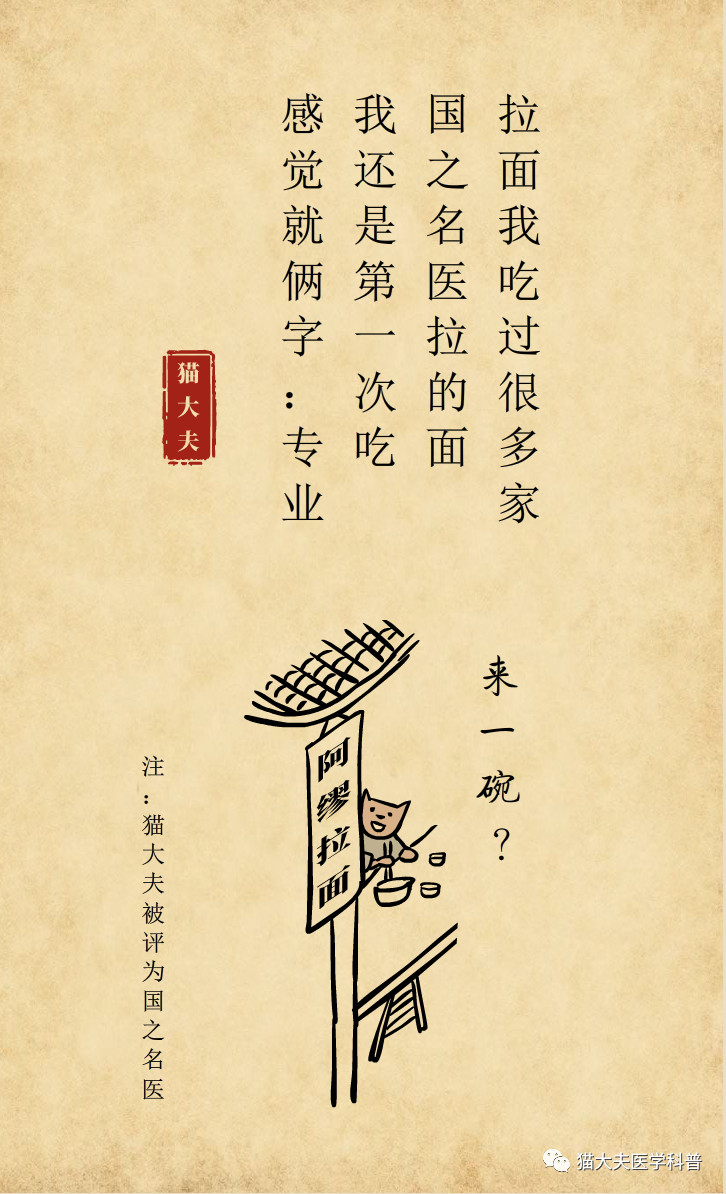 拉面我吃过很多家
国之名医拉的面
我还是第一次吃
感觉就俩字：专业
猫大夫
来一碗？
阿缪拉面
注：猫大夫被评为国之名医
猫大夫医学科普